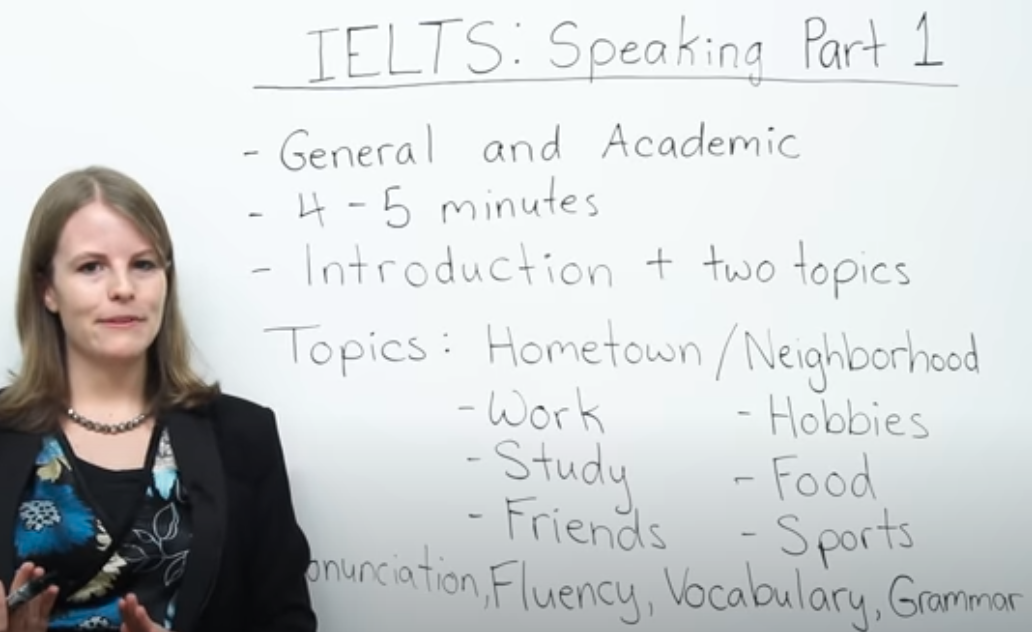 IELTS: Speaking Part 1
- General and Academic
- 4-5 minutes
- Introduction + two topics
Topics: Hometown / Neighborhood
- Work - Hobbies
- Study - Food
- Friends - Sports
onunciation, Fluency, Vocabulary, Grammar